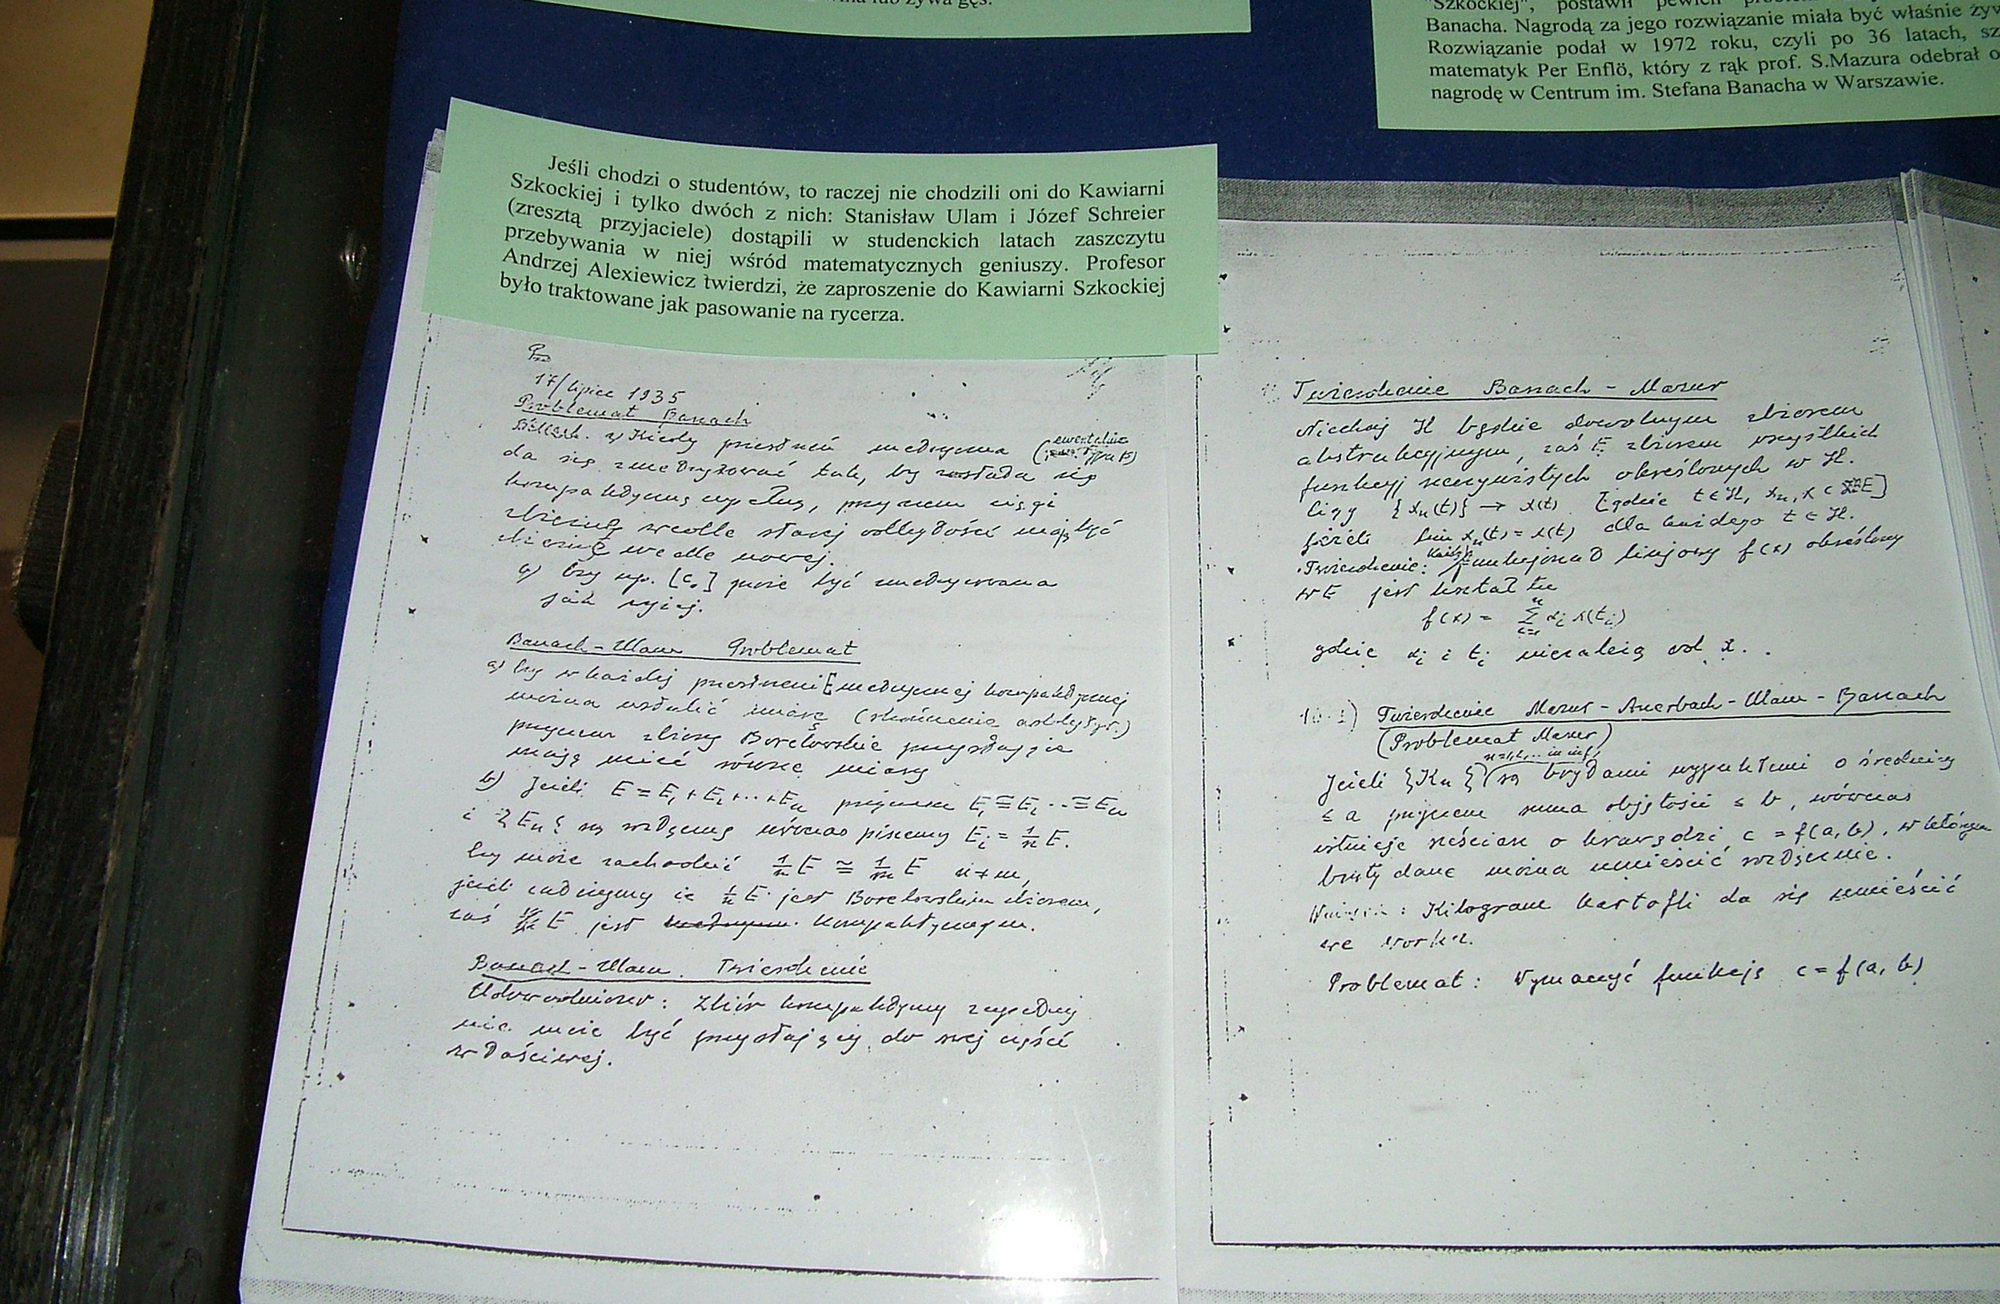 lub żywa gęś.
"Szkockiej", postawił pewien
Banacha. Nagrodą za jego rozwiązanie miała być właśnie
Rozwiązanie podał w 1972 roku, czyli po 36 latach,
matematyk Per Enflö, który z rąk prof. S.Mazura odebrał
nagrodę w Centrum im. Stefana Banacha w Warszawie.
Jeśli chodzi o studentów, to raczej nie chodzili oni do Kawiarni
Szkockiej i tylko dwóch z nich: Stanisław Ulam i Józef Schreier
(zresztą przyjaciele) dostąpili w studenckich latach zaszczytu
przebywania w niej wśród matematycznych geniuszy. Profesor
Andrzej Alexiewicz twierdzi, że zaproszenie do Kawiarni Szkockiej
było traktowane jak pasowanie na rycerza.
17/lipiec 1935
Problemat Banach
Kiedy przestrzeń metryczna
da się zmetryzować tak, by stała się
kompaktyczną i zupełną, przyczem ciągi
zbieżne wedle starej odległości mają być
zbieżne wedle nowej.
Czy np. [c₀] może być zmetryzowana
jak wyżej.
Banach - Ulam Problemat
a) Czy w każdej przestrzeni E metrycznej kompaktycznej
można ustalić miarę (skończenie addyt.)
przyczem zbiory Borelowskie przystające
mają mieć równe miary
b) Jeżeli E = E₁ + E₂ + ... + Eₙ przyczem E₁ ≅ E₂ ... ≅ Eₙ
i {Eₙ} są rozłączne wówczas piszemy Eᵢ = 1/n E.
Czy może zachodzić 1/n E ≅ 1/m E n ≠ m,
jeżeli założymy że 1/n E jest Borelowskim zbiorem,
zaś E jest kompaktycznym.
Banach - Ulam. Twierdzenie
Udowodniono: Zbiór kompaktyczny
nie może być przystający do swej części
właściwej.
Twierdzenie Banach - Mazur
Niechaj H będzie dowolnym zbiorem
abstrakcyjnym, zaś E zbiorem wszystkich
funkcyj rzeczywistych określonych w H.
{xₙ(t)} → x(t) gdzie t ∈ H,
jeżeli lim xₙ(t) = x(t) dla każdego t ∈ H.
Twierdzenie: Każdy funkcjonał linjowy f(x) określony
w E jest kształtu
f(x) = Σ αᵢ x(tᵢ)
gdzie αᵢ i tᵢ niezależą od x.
Twierdzenie Mazur - Auerbach - Ulam - Banach
(Problemat Mazur)
Jeżeli {Kₙ} są bryłami wypukłemi o średnicy
≤ a przyczem suma objętości ≤ b, wówczas
istnieje sześcian o krawędzi c = f(a, b), w którym
bryły dane można umieścić rozłącznie.
Wniosek: Kilogram kartofli da się umieścić
we worku.
Problemat: Wyznaczyć funkcję c = f(a, b)